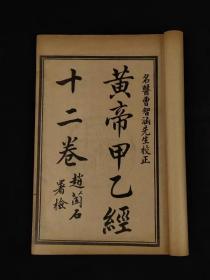 名醫曹智涵先生校正
黃帝甲乙經
十二卷
趙蘭石
署檢